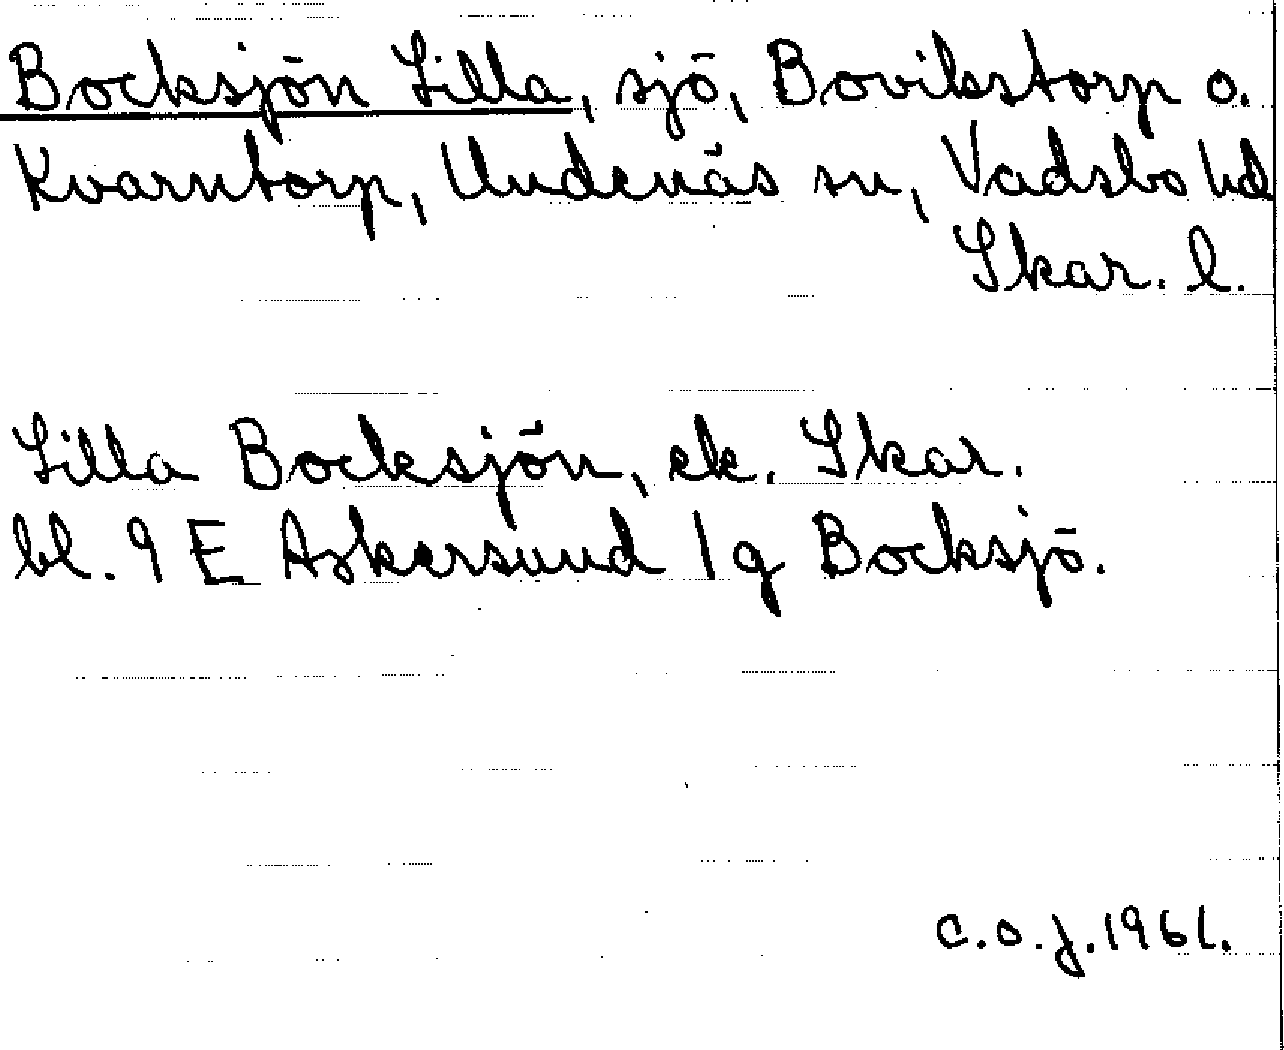 Bocksjön Lilla, sjö, Bovikstorp o.
Kvarntorp, Undenäs sn, Vadsbo hd
Skar. l.
Lilla Bocksjön, ek. Skar.
bl. 9 E Askersund 1 g Bocksjö.
C.O.J. 1961.